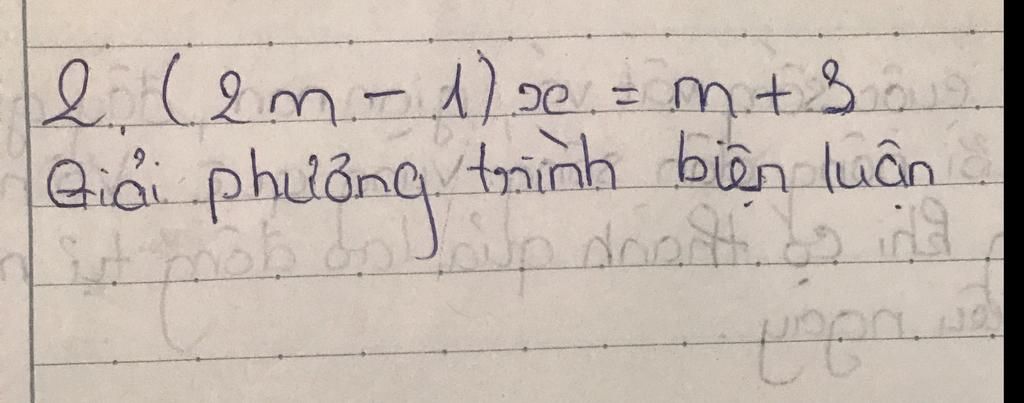 2, (2m - 1)x = m + 3
Giải phương trình biện luận